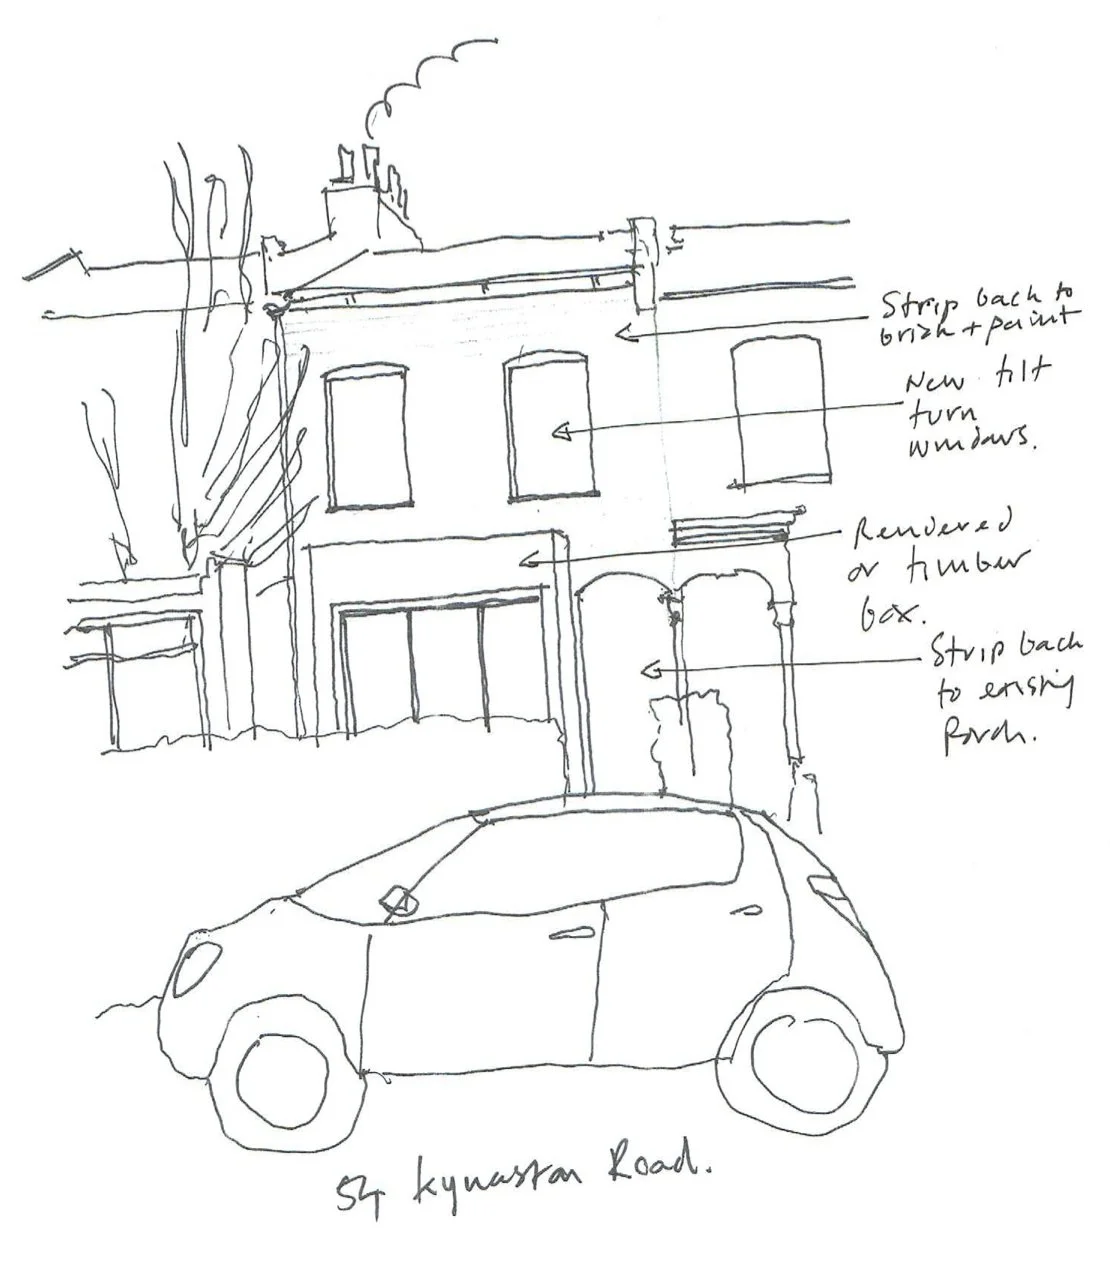 Strip back to
brick + paint
New tilt
turn
windows.
Rendered
or timber
box.
Strip back
to existing
Porch.
54 Kynaston Road.